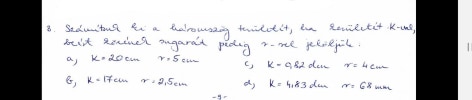 8. Számítsuk ki a háromszög területét, ha kerületét K-val,
beírt körének sugarát pedig r-rel jelöljük.
a, K=20cm r=5cm c, K=0,82dm r=4cm
b, K=17cm r=2,5cm d, K=4,83dm r=68mm
-9-